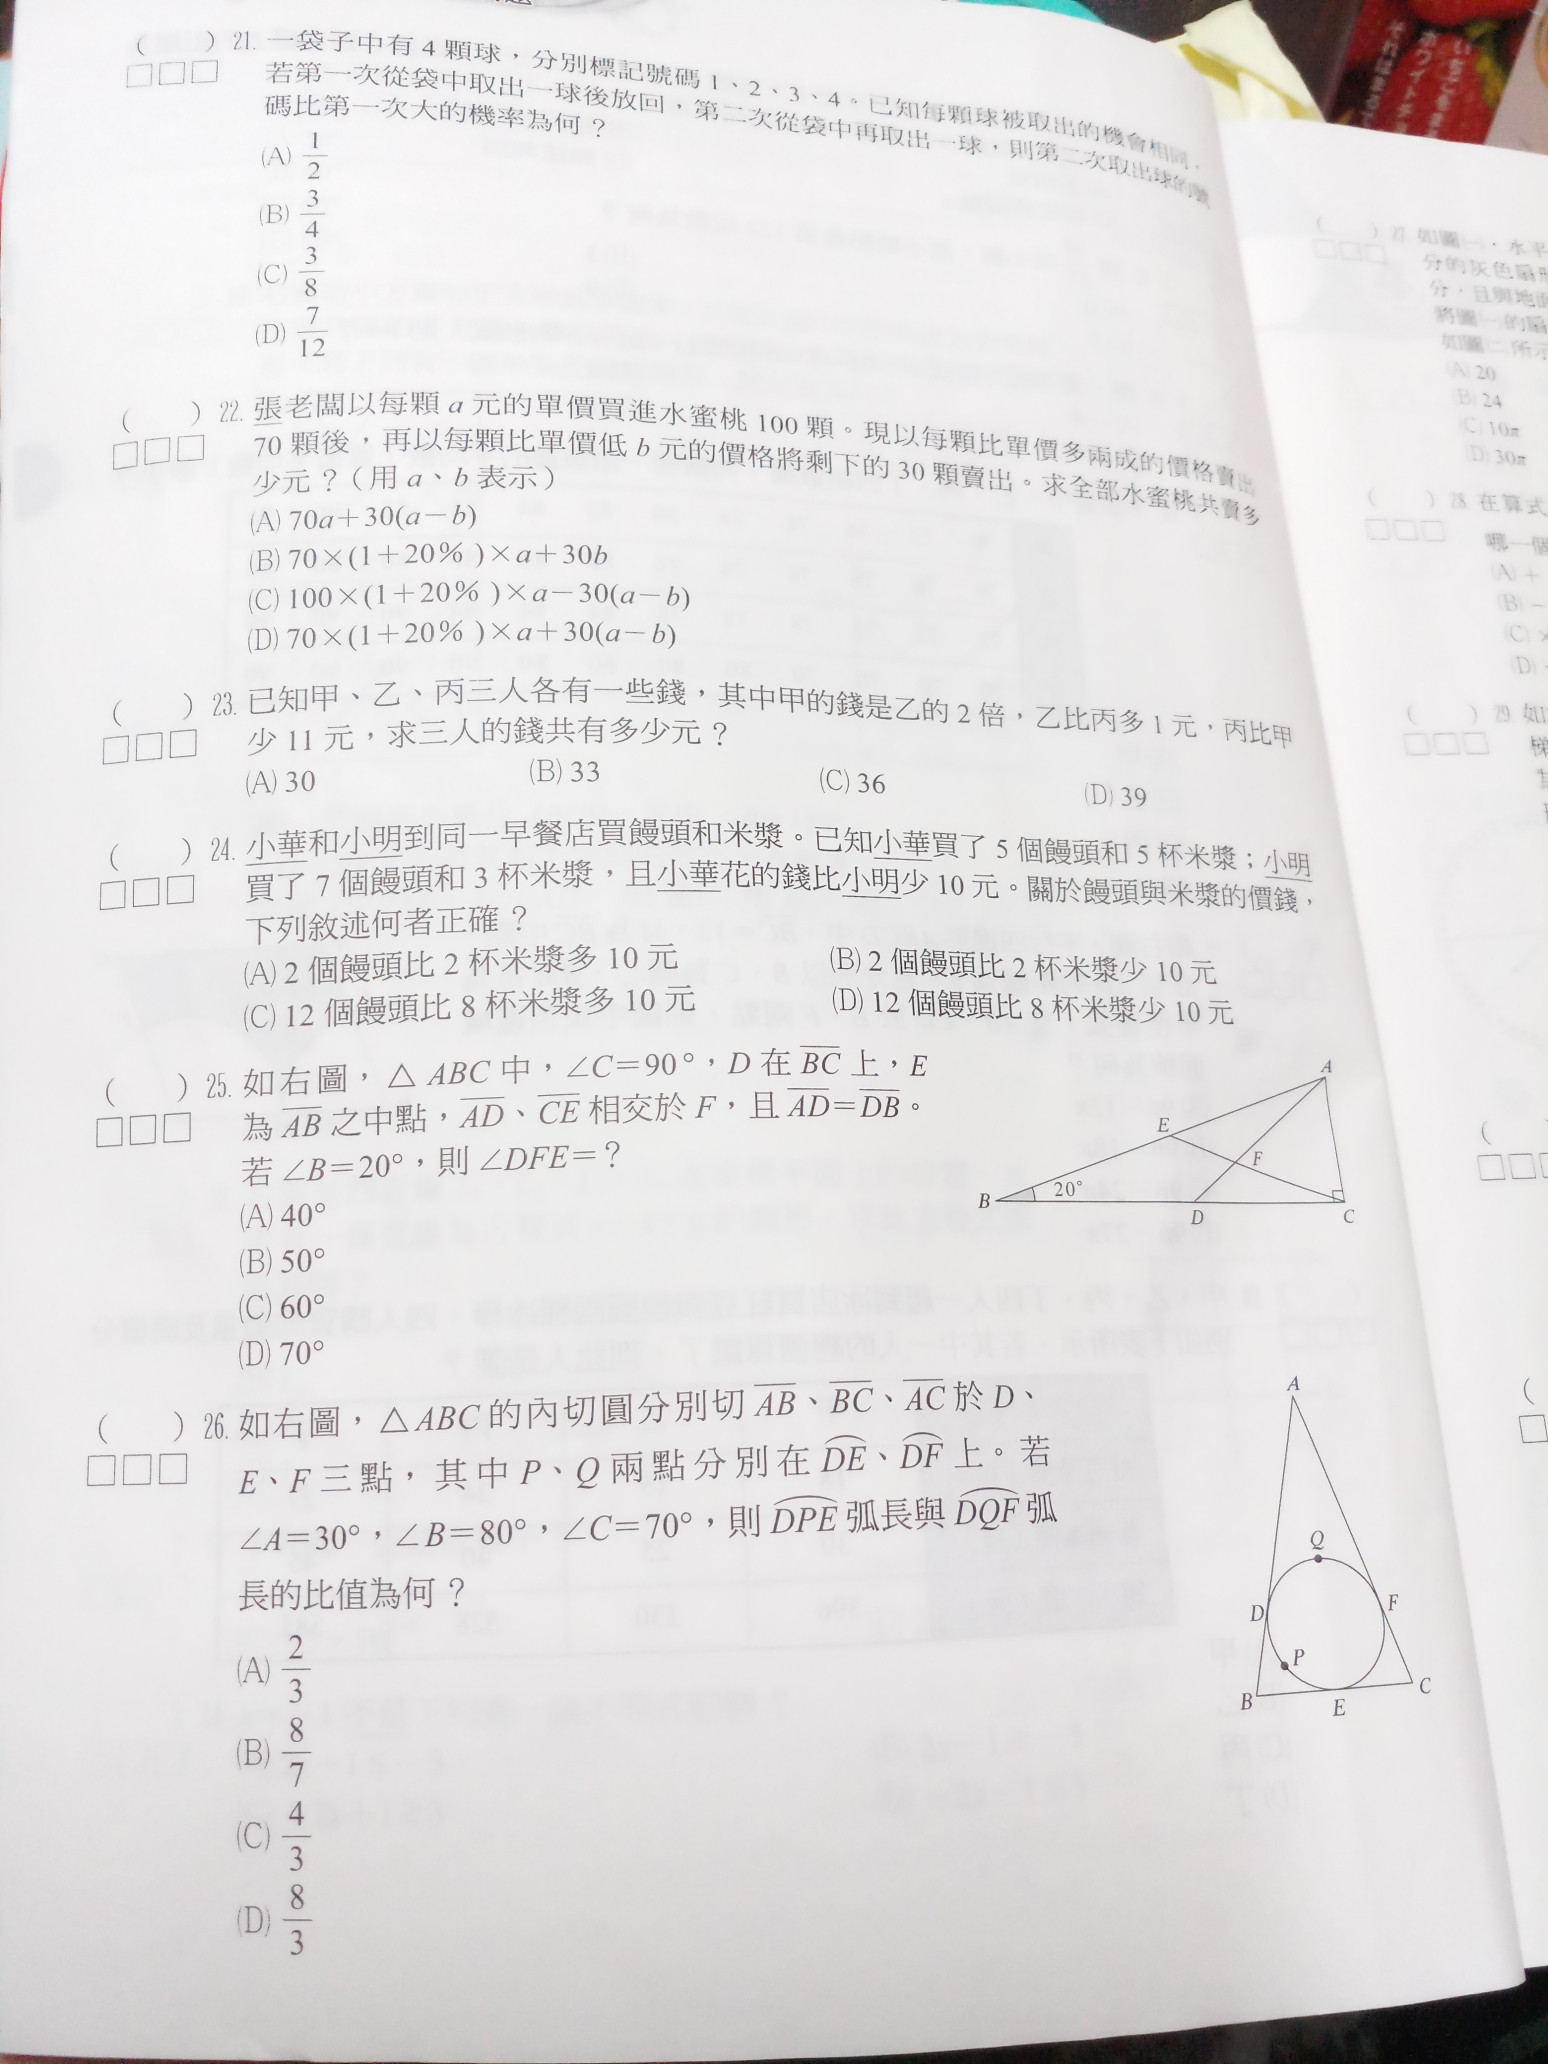 ( ) 21. 一袋子中有 4 顆球，分別標記號碼 1、2、3、4。已知每顆球被取出的機會相同，
□□□ 若第一次從袋中取出一球後放回，第二次從袋中再取出一球，則第二次取出球的號
碼比第一次大的機率為何？
(A) 1/2
(B) 3/4
(C) 3/8
(D) 7/12
( ) 22. 張老闆以每顆 a 元的單價買進水蜜桃 100 顆。現以每顆比單價多兩成的價格賣出
□□□ 70 顆後，再以每顆比單價低 b 元的價格將剩下的 30 顆賣出。求全部水蜜桃共賣多
少元？（用 a、b 表示）
(A) 70a＋30(a－b)
(B) 70×(1＋20%)×a＋30b
(C) 100×(1＋20%)×a－30(a－b)
(D) 70×(1＋20%)×a＋30(a－b)
( ) 23. 已知甲、乙、丙三人各有一些錢，其中甲的錢是乙的 2 倍，乙比丙多 1 元，丙比甲
□□□ 少 11 元，求三人的錢共有多少元？
(A) 30 (B) 33 (C) 36 (D) 39
( ) 24. 小華和小明到同一早餐店買饅頭和米漿。已知小華買了 5 個饅頭和 5 杯米漿；小明
□□□ 買了 7 個饅頭和 3 杯米漿，且小華花的錢比小明少 10 元。關於饅頭與米漿的價錢，
下列敘述何者正確？
(A) 2 個饅頭比 2 杯米漿多 10 元 (B) 2 個饅頭比 2 杯米漿少 10 元
(C) 12 個饅頭比 8 杯米漿多 10 元 (D) 12 個饅頭比 8 杯米漿少 10 元
( ) 25. 如右圖，△ABC 中，∠C＝90°，D 在 BC 上，E
□□□ 為 AB 之中點，AD、CE 相交於 F，且 AD＝DB。
若 ∠B＝20°，則 ∠DFE＝？
(A) 40°
(B) 50°
(C) 60°
(D) 70°
A
E
F
B
20°
D
C
( ) 26. 如右圖，△ABC 的內切圓分別切 AB、BC、AC 於 D、
□□□ E、F 三點，其中 P、Q 兩點分別在 DE、DF 上。若
∠A＝30°，∠B＝80°，∠C＝70°，則 DPE 弧長與 DQF 弧
長的比值為何？
(A) 2/3
(B) 8/7
(C) 4/3
(D) 8/3
A
Q
D
F
P
B
E
C
( ) 27. 如圖㈠，水平
□□□ 分的灰色扇形
分，且與地面
將圖㈠的扇
如圖㈡所示
(A) 20
(B) 24
(C) 10π
(D) 30π
( ) 28. 在算式
□□□ 哪一個
(A) ＋
(B) －
(C) ×
(D)
( ) 29. 如
□□□ 梯
いちごをま
ホワイトチ
それはまるで